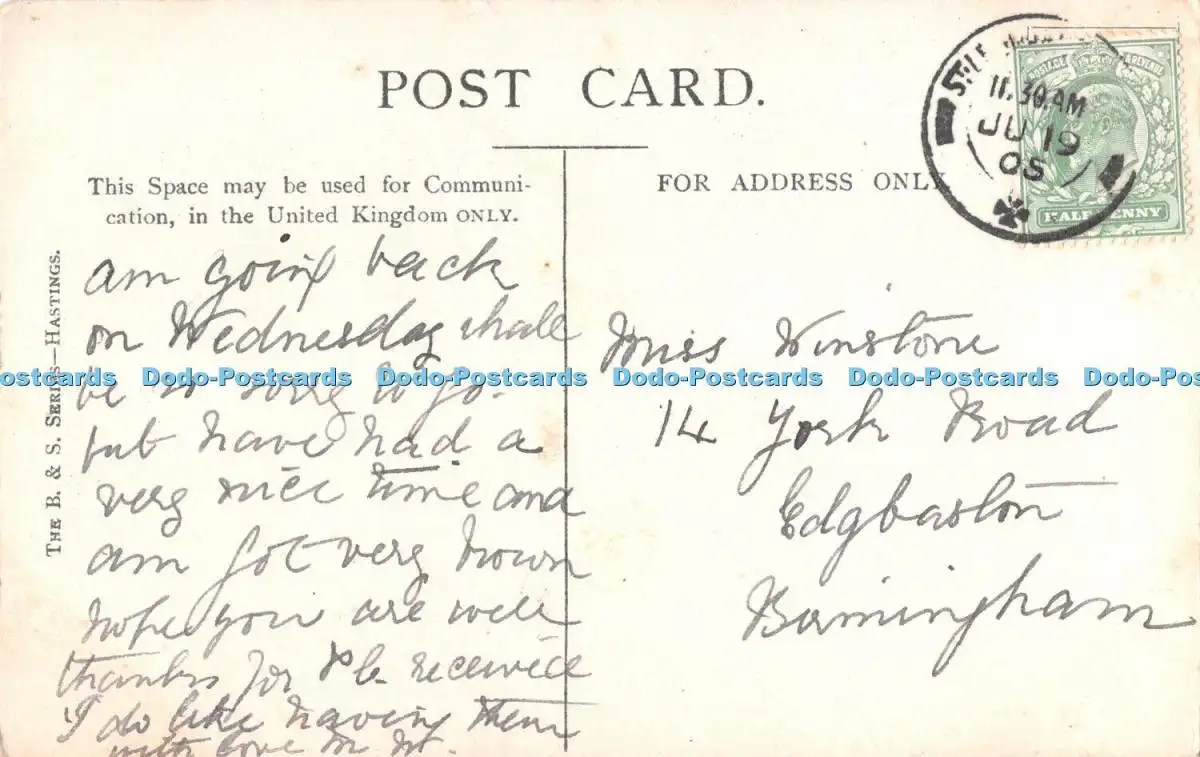 POST CARD.
This Space may be used for Communi-
cation, in the United Kingdom ONLY.
FOR ADDRESS ONLY
THE B. & S. SERIES—HASTINGS.
ST. LE
11.30 AM
JU 19
05
POSTAGE REVENUE
HALFPENNY
am going back
on Wednesday shall
be so sorry to go.
but have had a
very nice time and
am got very brown
hope you are well
thanks for received
I do like having them
with love
Miss Winstone
14 York Road
Edgbaston
Birmingham
Dodo-Postcards Dodo-Postcards Dodo-Postcards Dodo-Postcards